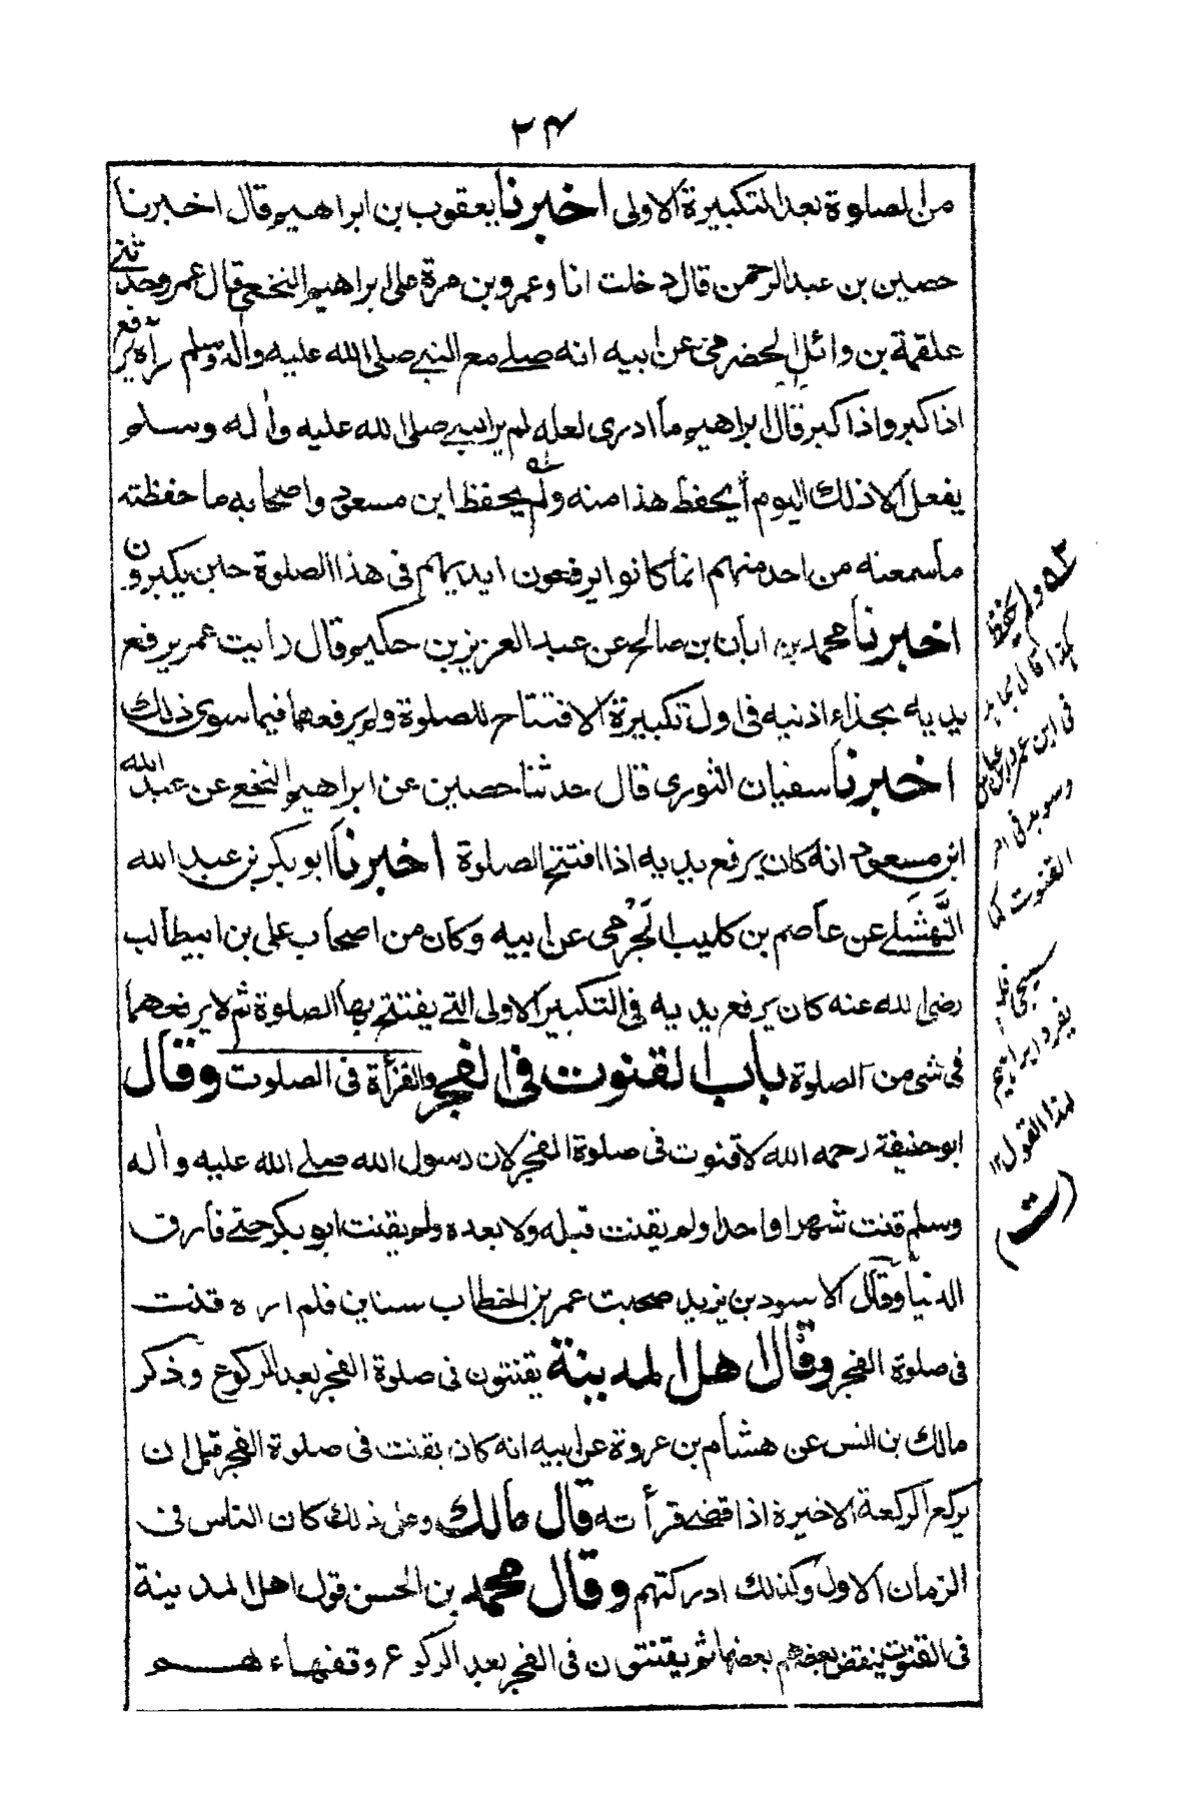 ۲۴
من الصلوة بعد التكبيرة الاولى اخبرنا يعقوب بن ابراهيم قال اخبرنا
حصين بن عبد الرحمن قال دخلت انا وعمرو بن مرة على ابراهيم النخعى قال عمرو حدثنى
علقمة بن وائل الحضرمى عن ابيه انه صلى مع النبى صلى الله عليه واله وسلم رآه يرفع
اذا كبر واذا كبر قال ابراهيم ما ادرى لعله لم ير النبى صلى الله عليه واله وسلم
يفعل الا ذلك اليوم أيحفظ هذا منه ولم يحفظ ابن مسعود واصحابه ما حفظته
ما سمعته من احد منهم انما كانوا يرفعون ايديهم فى هذا الصلوة حين يكبرون
اخبرنا محمد بن ابان بن صالح عن عبد العزيز بن حكيم قال رايت عمر يرفع
يديه بحذاء اذنيه فى اول تكبيرة الافتتاح للصلوة ولم يرفعهما فيما سوى ذلك
اخبرنا سفيان الثورى قال حدثنا حصين عن ابراهيم النخعى عن عبد الله
ابن مسعود انه كان يرفع يديه اذا افتتح الصلوة اخبرنا ابو بكر بن عبد الله
النَّهْشَلى عن عاصم بن كليب الجَرْمى عن ابيه وكان من اصحاب على بن ابيطالب
رضى الله عنه كان يرفع يديه فى التكبير الاولى التى يفتتح بها الصلوة ثم لا يرفعهما
فى شئ من الصلوة باب القنوت فى الفجر والقرأة فى الصلوت وقال
ابو حنيفة رحمه الله لا قنوت فى صلوة الفجر لان رسول الله صلى الله عليه واله
وسلم قنت شهرا واحدا ولم يقنت قبله ولا بعده ولم يقنت ابو بكر حتى فارق
الدنيا وقال الاسود بن يزيد صحبت عمر بن الخطاب سنين فلم اره قنت
فى صلوة الفجر وقال اهل المدينة يقنتون فى صلوة الفجر بعد الركوع وذكر
مالك بن انس عن هشام بن عروة عن ابيه انه كان يقنت فى صلوة الفجر قبل ان
يركع الركعة الاخيرة اذا قضى قرأته قال مالك وعلى ذلك كان الناس فى
الزمان الاول وكذلك ادركتهم وقال محمد بن الحسن قول اهل المدينة
فى القنوت ينقض بعضهم بعضا ثم يقنتون فى الفجر بعد الركوع وفقهاءهم
ولم يحفظ
هكذا قال
فى ابن عمر وابن عباس
القنوت كما
سيجئ فلم
يفرد ابراهيم
بهذا القول ۱۲
(ت)